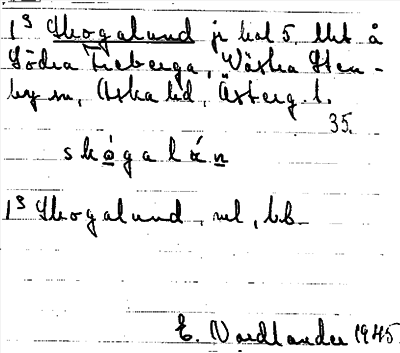 1³ Skogalund jr kol 5. lht å
Södra Freberga, Västra Sten-
by sn, Aska hd, Österg. l.
35.
skógalán
1³ Skogalund, ul, bb.
E. Nordlander 1945.